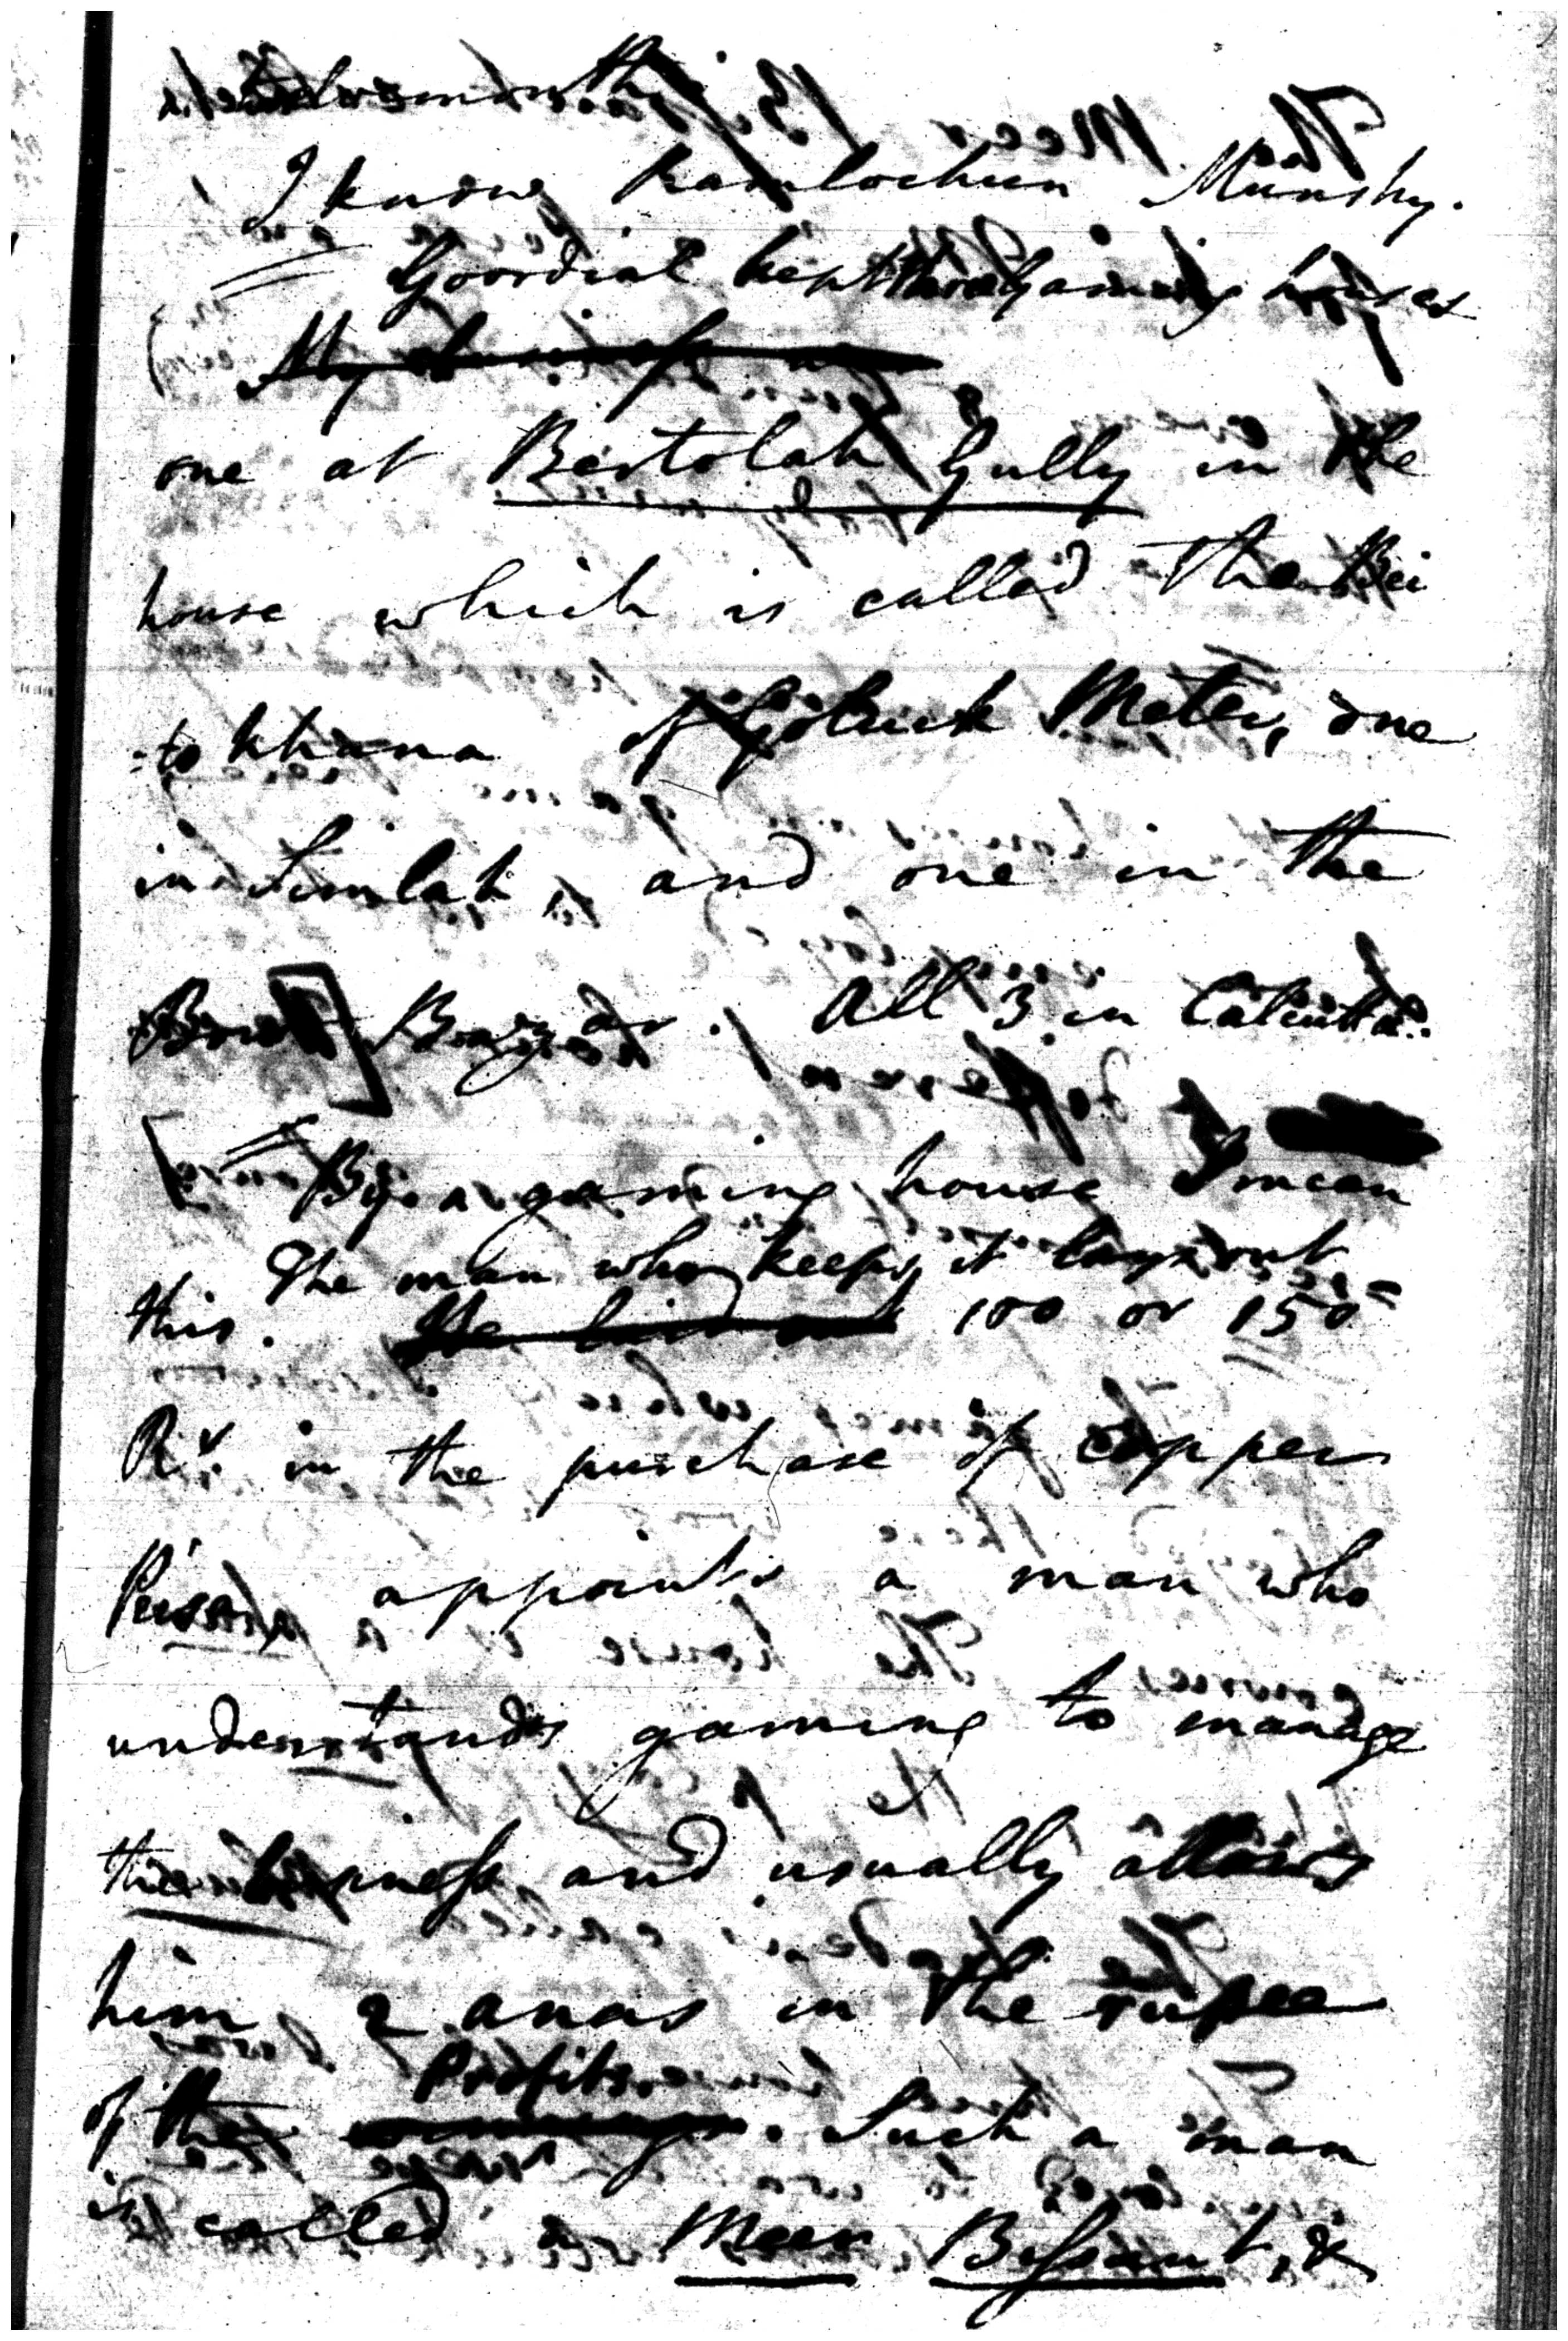 I know Ramlochun Munshy.
Goordial kept three Gaming houses
My business
one at Bertolah Gully in the
house which is called the Bei
=to khana of Goluck Meter, one
in Simlah, and one in the
Bazar. All 3 in Calcutta.
By a gaming house I mean
The man who keeps it lays out
this. He laid out 100 or 150
Rs. in the purchase of copper
appoints a man who
understands gaming to manage
the business and usually allows
him 2 anas in the rupee
Profits
of the winnings. Such a man
is called a Meer Bessaut, &